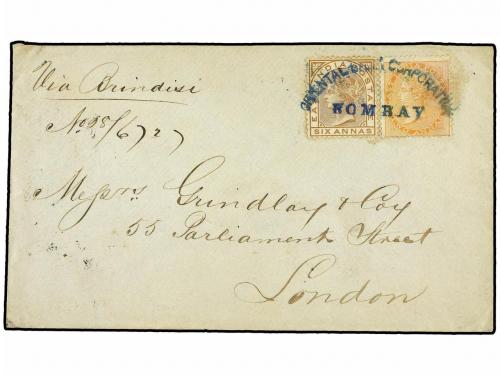 Via Brindisi
No 98/6727
Messrs Grindlay & Coy
55 Parliament Street
London
EAST INDIA POSTAGE
SIX ANNAS
ORIENTAL BANK CORPORATION
BOMBAY